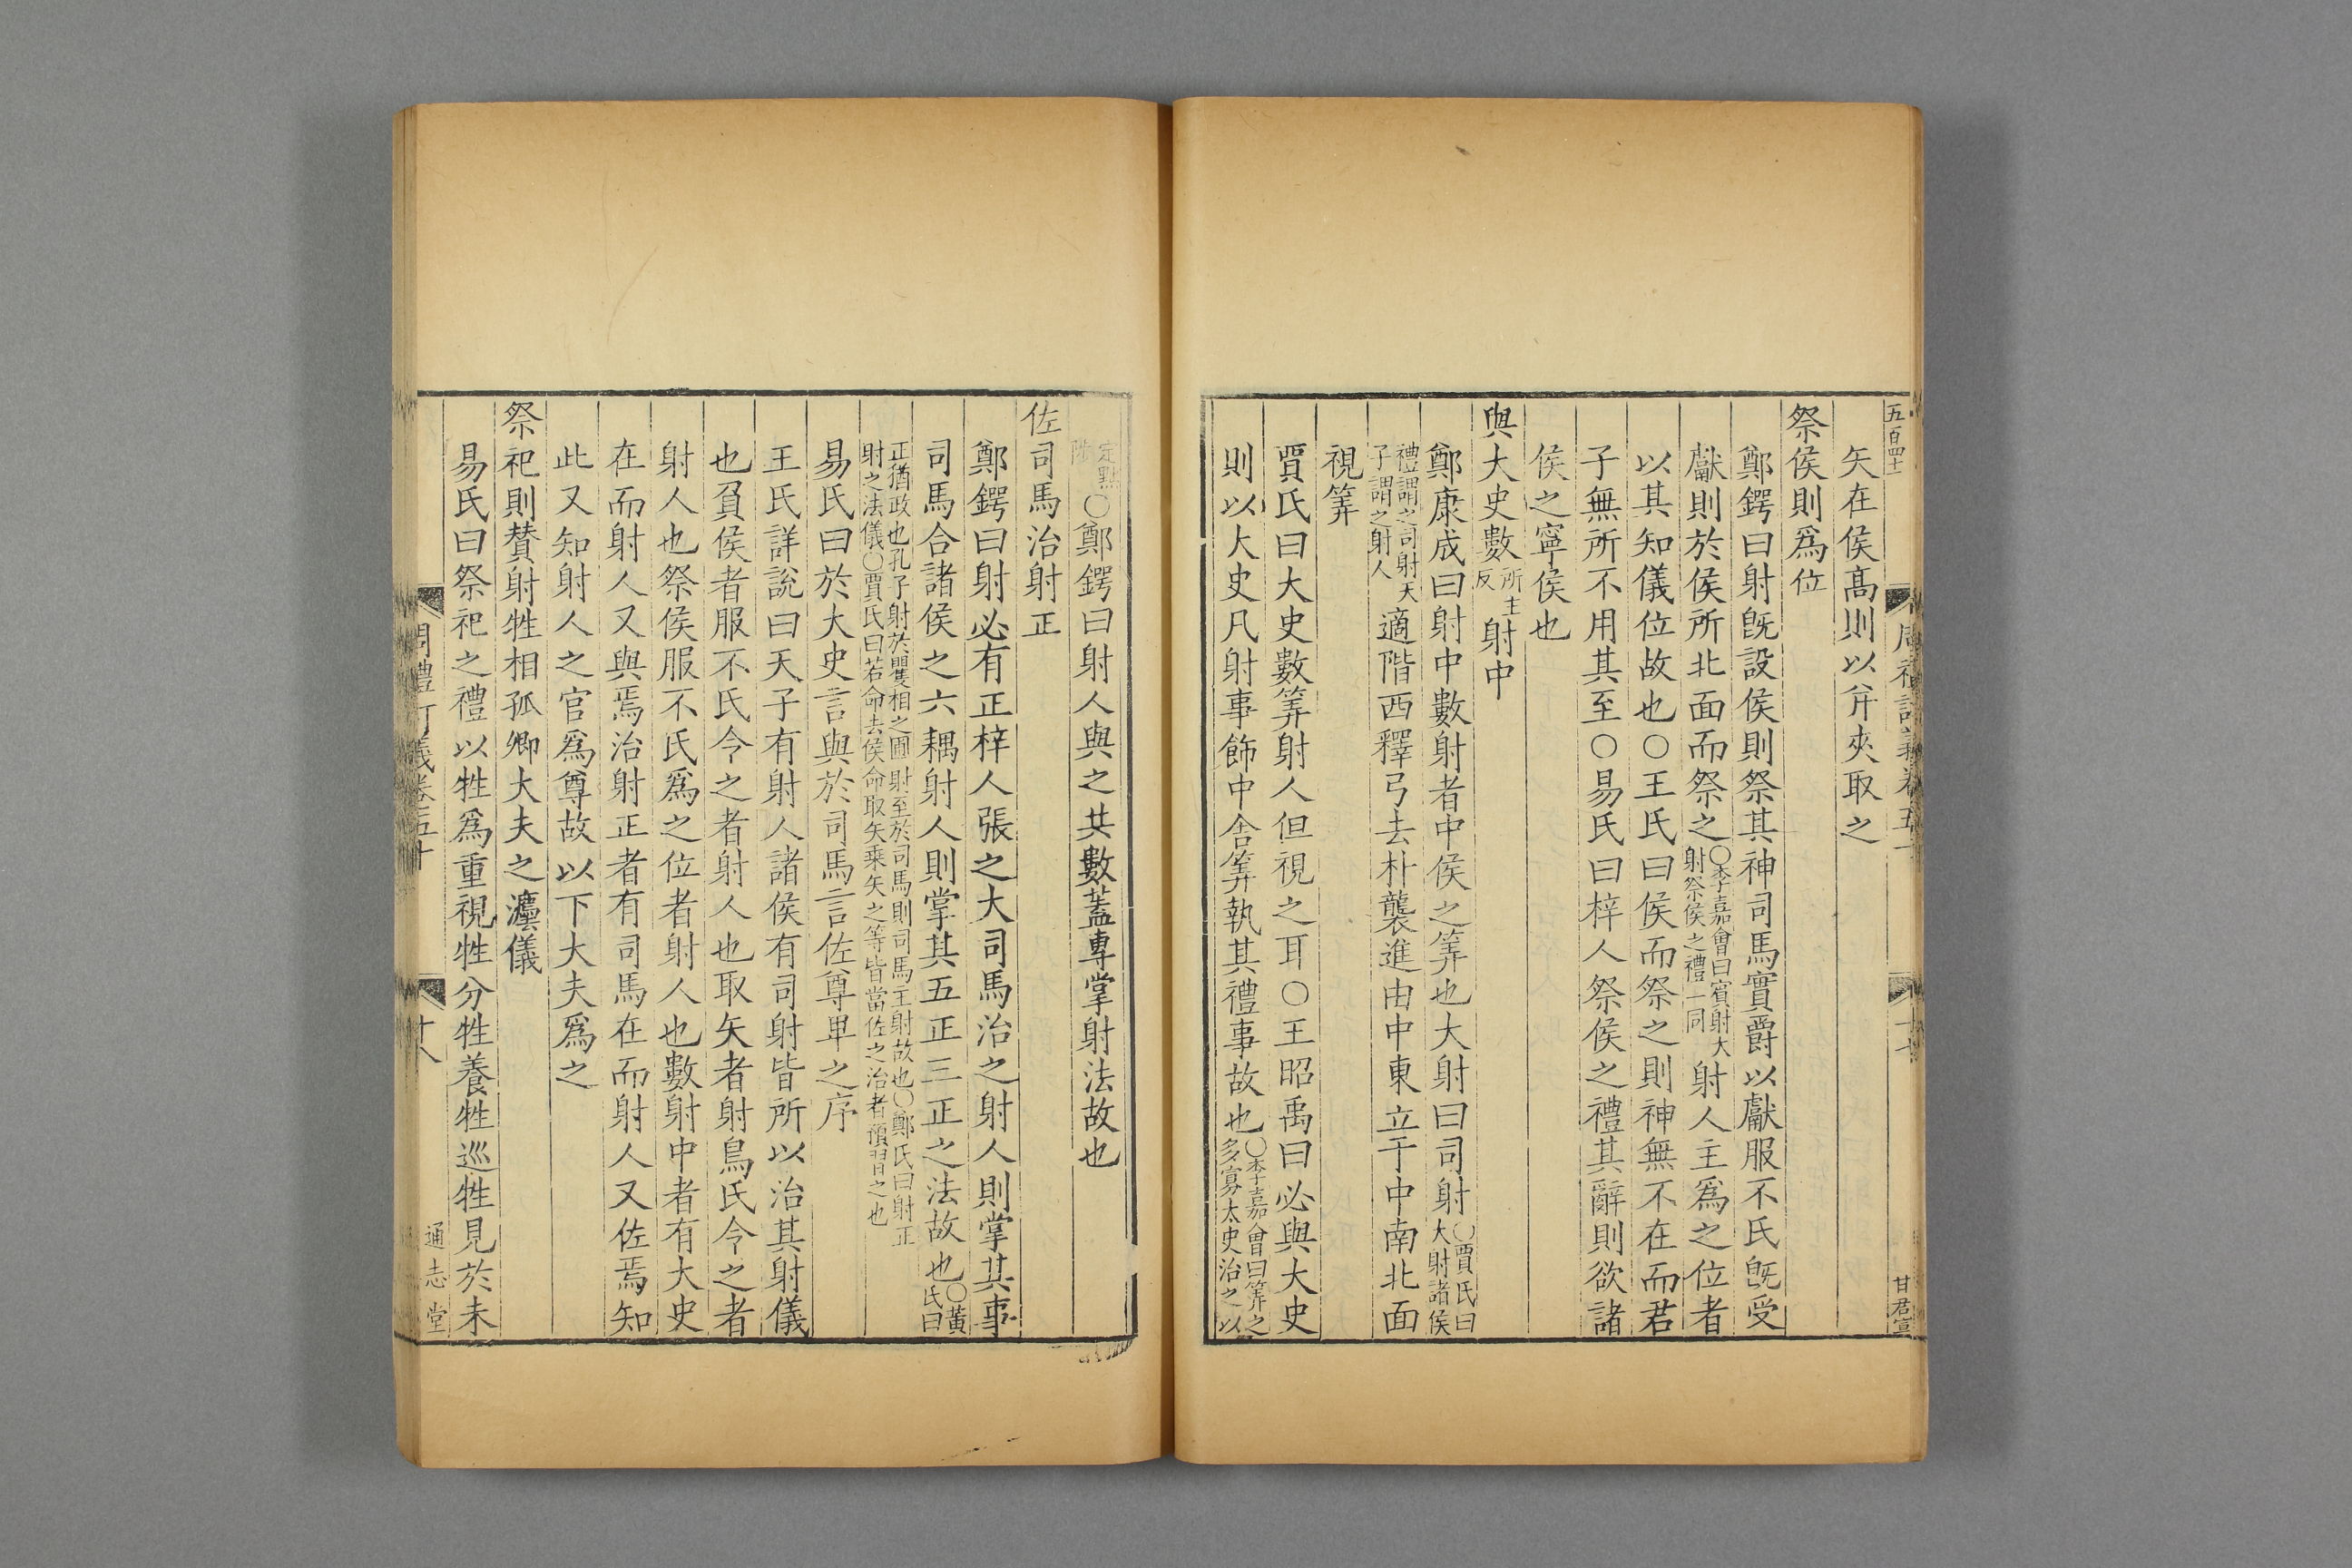 五百四十
甘君宣
矢在侯高則以并夾取之
祭侯則爲位
鄭鍔曰射旣設侯則祭其神司馬實爵以獻服不氏旣受
獻則於侯所北面而祭之○李嘉會曰賓射大射祭侯之禮一同射人主爲之位者
以其知儀位故也○王氏曰侯而祭之則神無不在而君
子無所不用其至○易氏曰梓人祭侯之禮其辭則欲諸
侯之寧侯也
與大史數所主反射中
鄭康成曰射中數射者中侯之筭也大射曰司射○賈氏曰大射諸侯
禮謂之司射天子謂之射人適階西釋弓去朴襲進由中東立于中南北面
視筭
賈氏曰大史數筭射人但視之耳○王昭禹曰必與大史
則以大史凡射事飾中舍筭執其禮事故也○李嘉會曰筭之多寡太史治之以
定㸃○鄭鍔曰射人與之共數蓋專掌射法故也
佐司馬治射正
鄭鍔曰射必有正梓人張之大司馬治之射人則掌其事
司馬合諸侯之六耦射人則掌其五正三正之法故也○黃氏曰
正猶政也孔子射於矍相之圃射至於司馬則司馬主射故也○鄭氏曰射正
射之法儀○賈氏曰若命去侯命取矢乘矢之等皆當佐之治者預習之也
易氏曰於大史言與於司馬言佐尊卑之序
王氏詳說曰天子有射人諸侯有司射皆所以治其射儀
也負侯者服不氏令之者射人也取矢者射鳥氏令之者
射人也祭侯服不氏爲之位者射人也數射中者有大史
在而射人又與焉治射正者有司馬在而射人又佐焉知
此又知射人之官爲尊故以下大夫爲之
祭祀則贊射牲相孤卿大夫之灋儀
易氏曰祭祀之禮以牲爲重視牲分牲養牲巡牲見於未
十八
通志堂